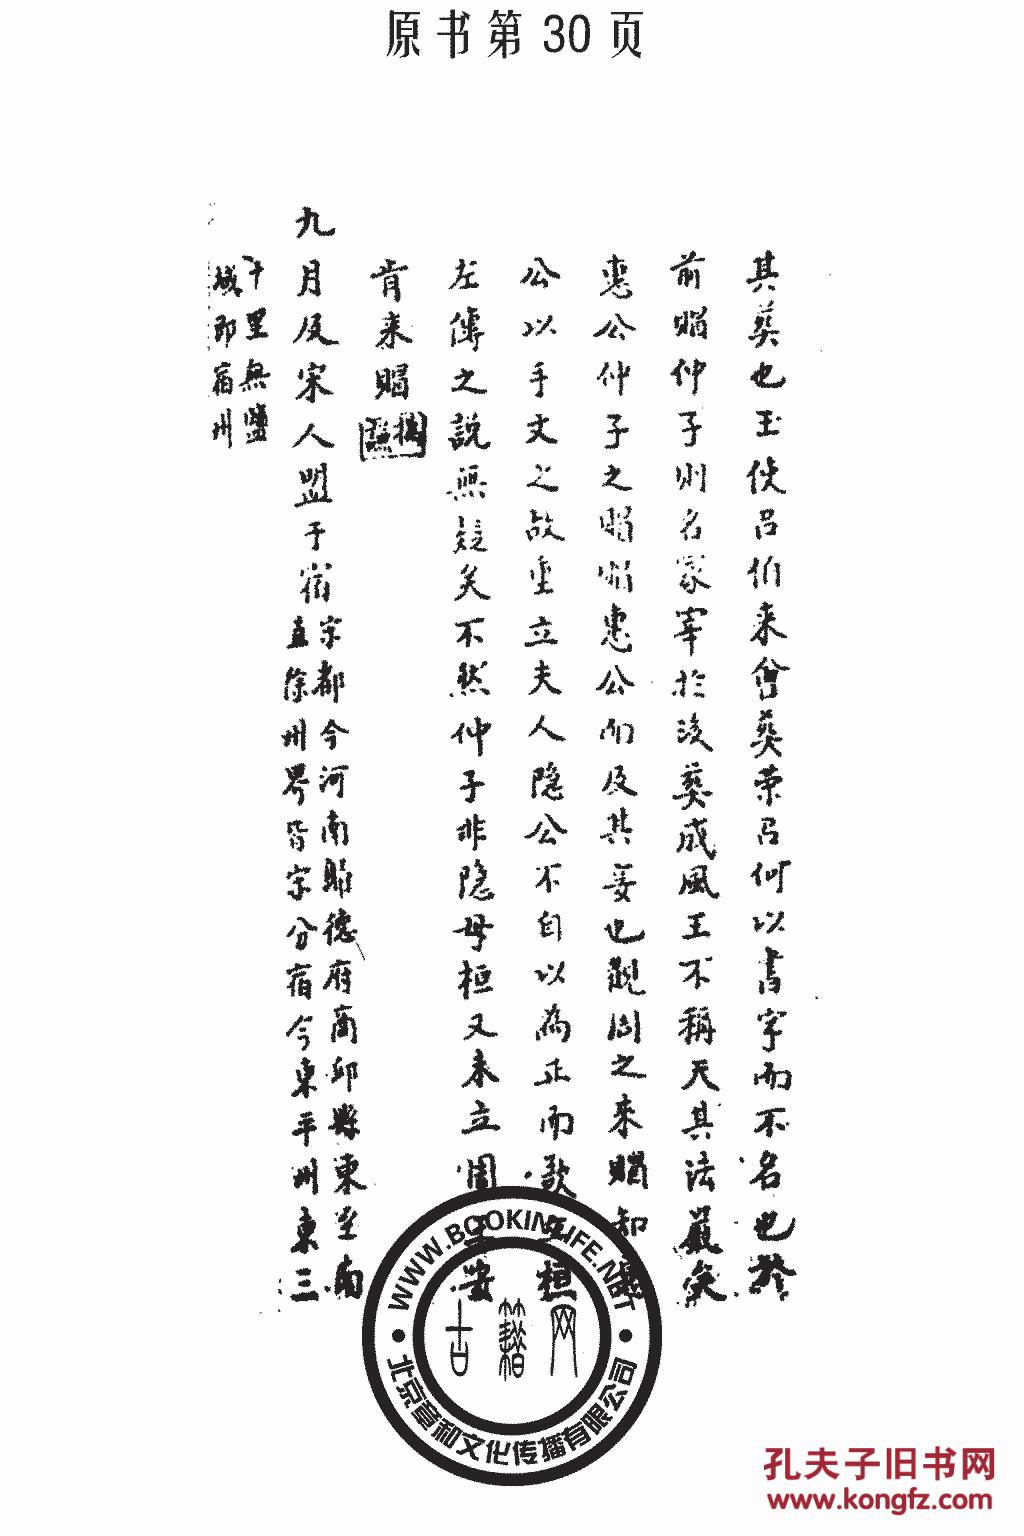 原书第30页
其葬也王使吕伯来會葬荣吕何以書字而不名也於
前賵仲子則名冢宰於後葬成風王不稱天其法嚴矣
惠公仲子之賵賵惠公而及其妾也觀周之来賵知惠
公以手文之故重立夫人隐公不自以為正而歌桓
左傳之説無疑矣不然仲子非隐母桓又未立周王安
肯来賵
九月及宋人盟于宿
宋都今河南歸德府商邱縣東至南
直徐州界皆宋分宿今東平州東三
十里無鹽
城即宿州
WWW.BOOKINLIFE.NET
古籍网
北京章和文化传播有限公司
孔夫子旧书网
www.kongfz.com